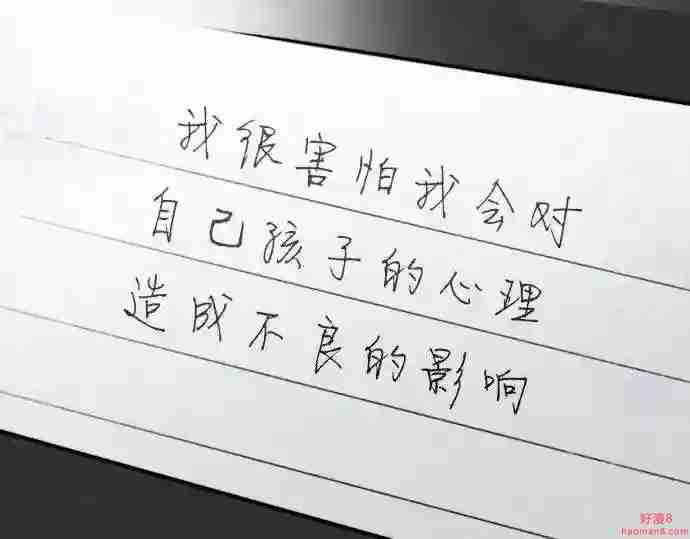 我很害怕我会对
自己孩子的心理
造成不良的影响
好漫8
haoman8.com